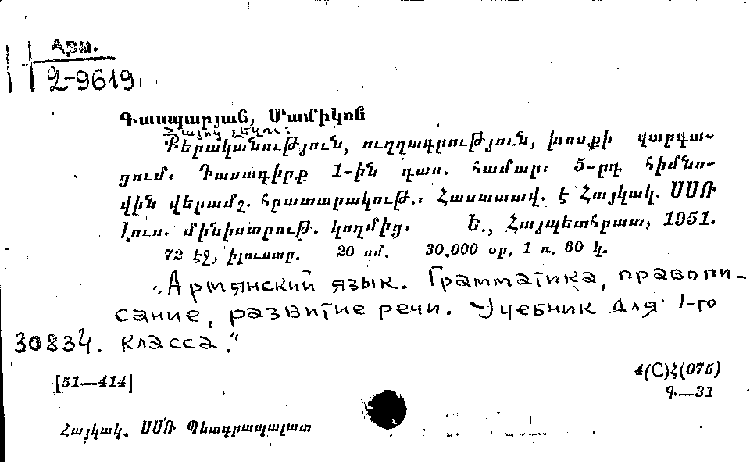 Арм.
2-9619
Գասպարյան, Մամիկոն
Հայոց լեզու:
Քերականություն, ուղղագրություն, խոսքի զարգա-
ցում: Դասագիրք 1-ին դաս. համար: 5-րդ հիմնո-
վին վերամշ. հրատարակութ.: Հաստատվ. է Հայկակ. ՍՍՌ
Լուս. մինիստրութ. կողմից. Ե., Հայպետհրատ, 1951.
72 էջ, իլուստր. 20 սմ. 30.000 օր. 1 ռ. 60 կ.
"Армянский язык. Грамматика, правопи-
сание, развитие речи. Учебник для 1-го
30834. класса."
[51—414]
4(С)ξ(075)
Գ—31
Հայկակ. ՍՍՌ Պետգրապալատ